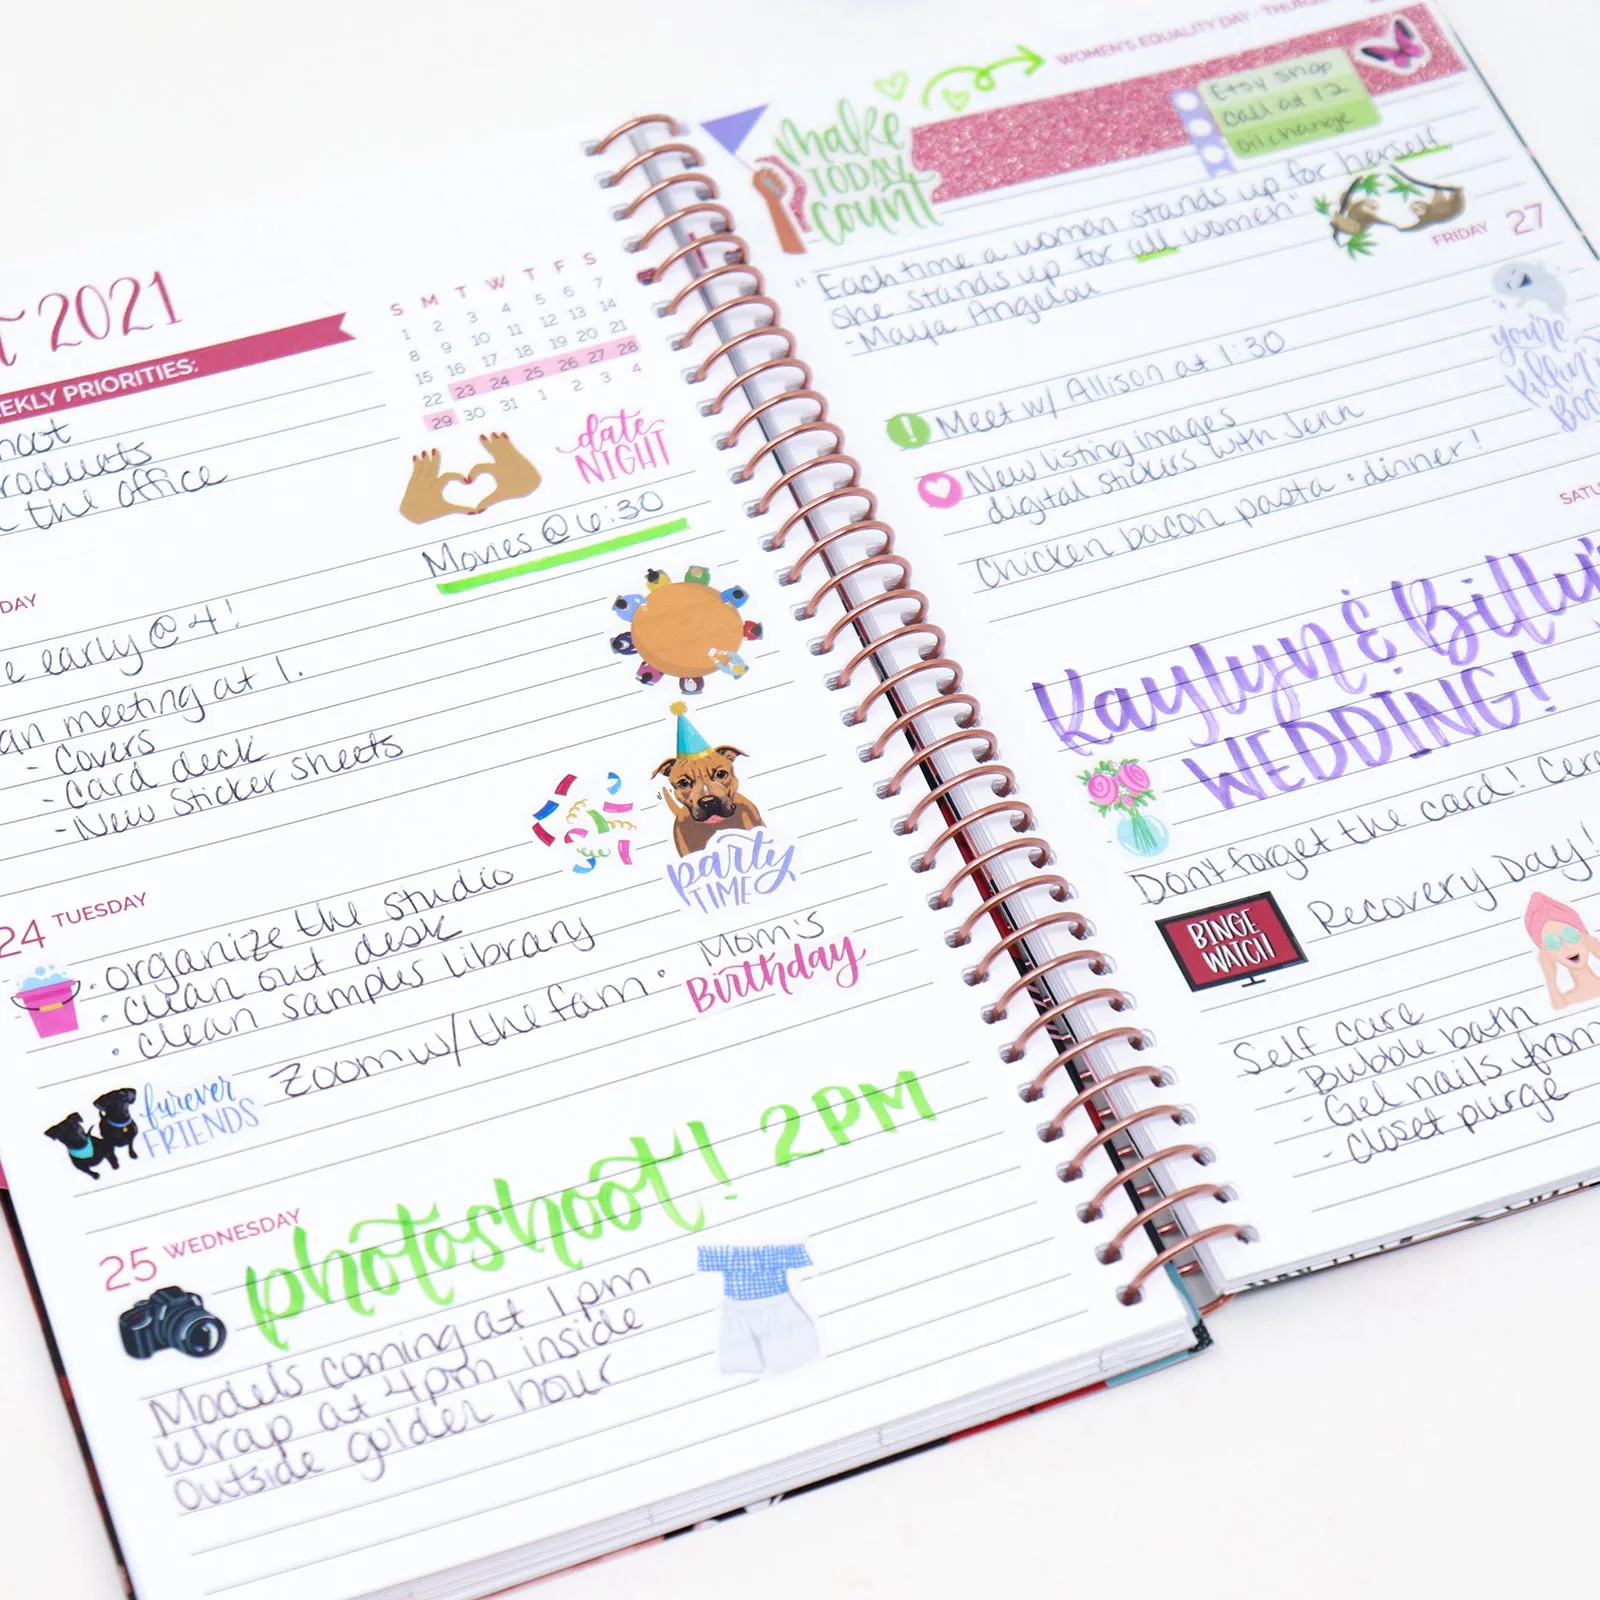 2021
WEEKLY PRIORITIES:
roducts
the office
S M T W T F S
1 2 3 4 5 6 7
8 9 10 11 12 13 14
15 16 17 18 19 20 21
22 23 24 25 26 27 28
29 30 31 1 2 3 4
date
NIGHT
Movies @ 6:30
DAY
early @ 4!
an meeting at 1.
- Covers
- Card deck
- New Sticker Sheets
party
TIME
24 TUESDAY
• organize the studio
• clean out desk
• clean samples library
Mom's
Birthday
Zoom w/ the fam •
furever
FRIENDS
25 WEDNESDAY
photoshoot! 2PM
Models coming at 1pm
Wrap at 4pm inside
Outside golden hour
WOMEN'S EQUALITY DAY - THURS
make
TODAY
count
Etsy shop
call at 12
oil change
"Each time a woman stands up for herself
she stands up for all women"
- Maya Angelou
FRIDAY 27
you're
killin'
Boo
Meet w/ Allison at 1:30
New listing images
digital stickers with Jenn
Chicken bacon pasta • dinner!
SATU
Kaylyn & Billy's
WEDDING!
Don't forget the card! Cere
BINGE
WATCH
Recovery Day!
Self care
- Bubble bath
- Gel nails from
- closet purge